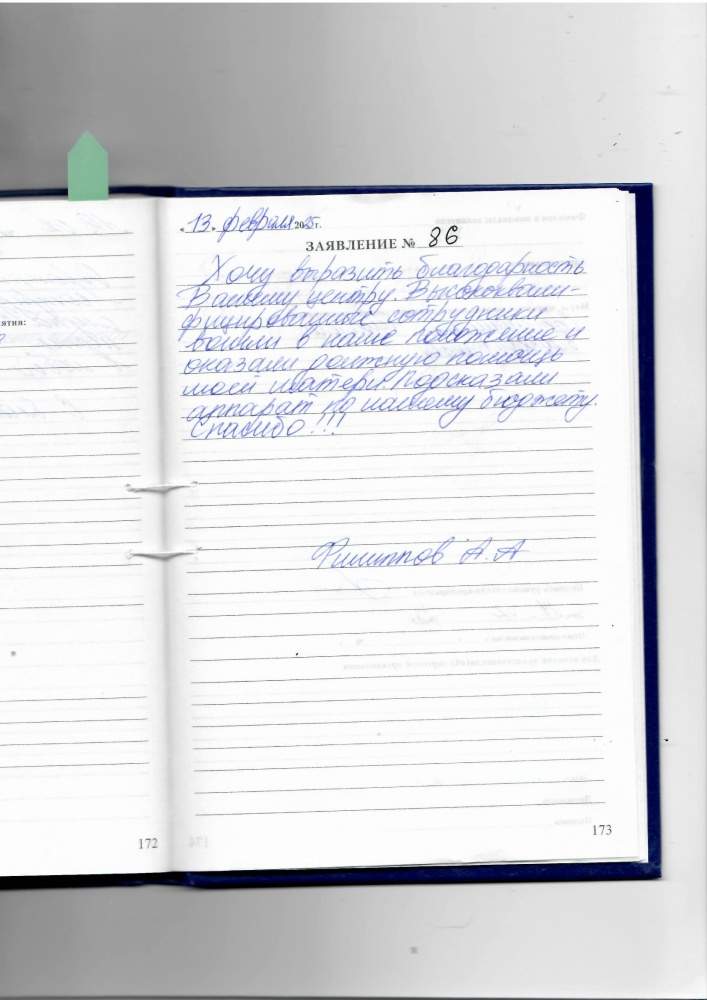 ятия:
« 13 » февраля 2025 г.
ЗАЯВЛЕНИЕ № 86
Хочу выразить благодарность
Вашему центру. Высококвали-
фицированные сотрудники
вошли в наше положение и
оказали должную помощь
моей матери. Подсказали
аппарат по нашему бюджету.
Спасибо!!!
Филиппов А.А
172
173